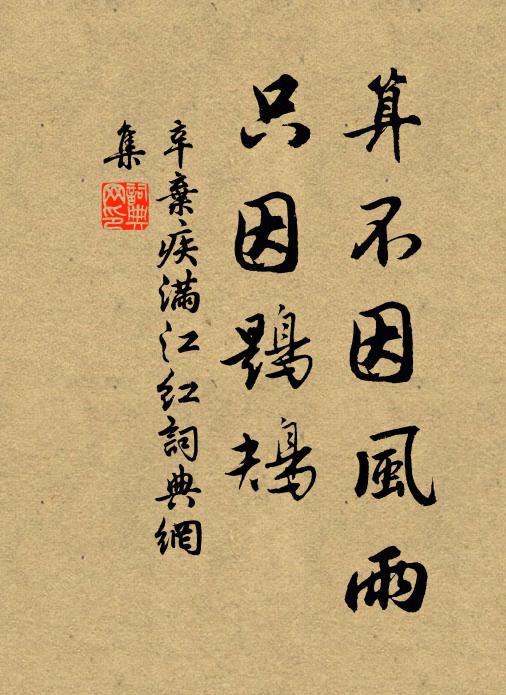 算不因風雨
只因鶗鴂
辛棄疾滿江紅詞典網
集
詞典
网印